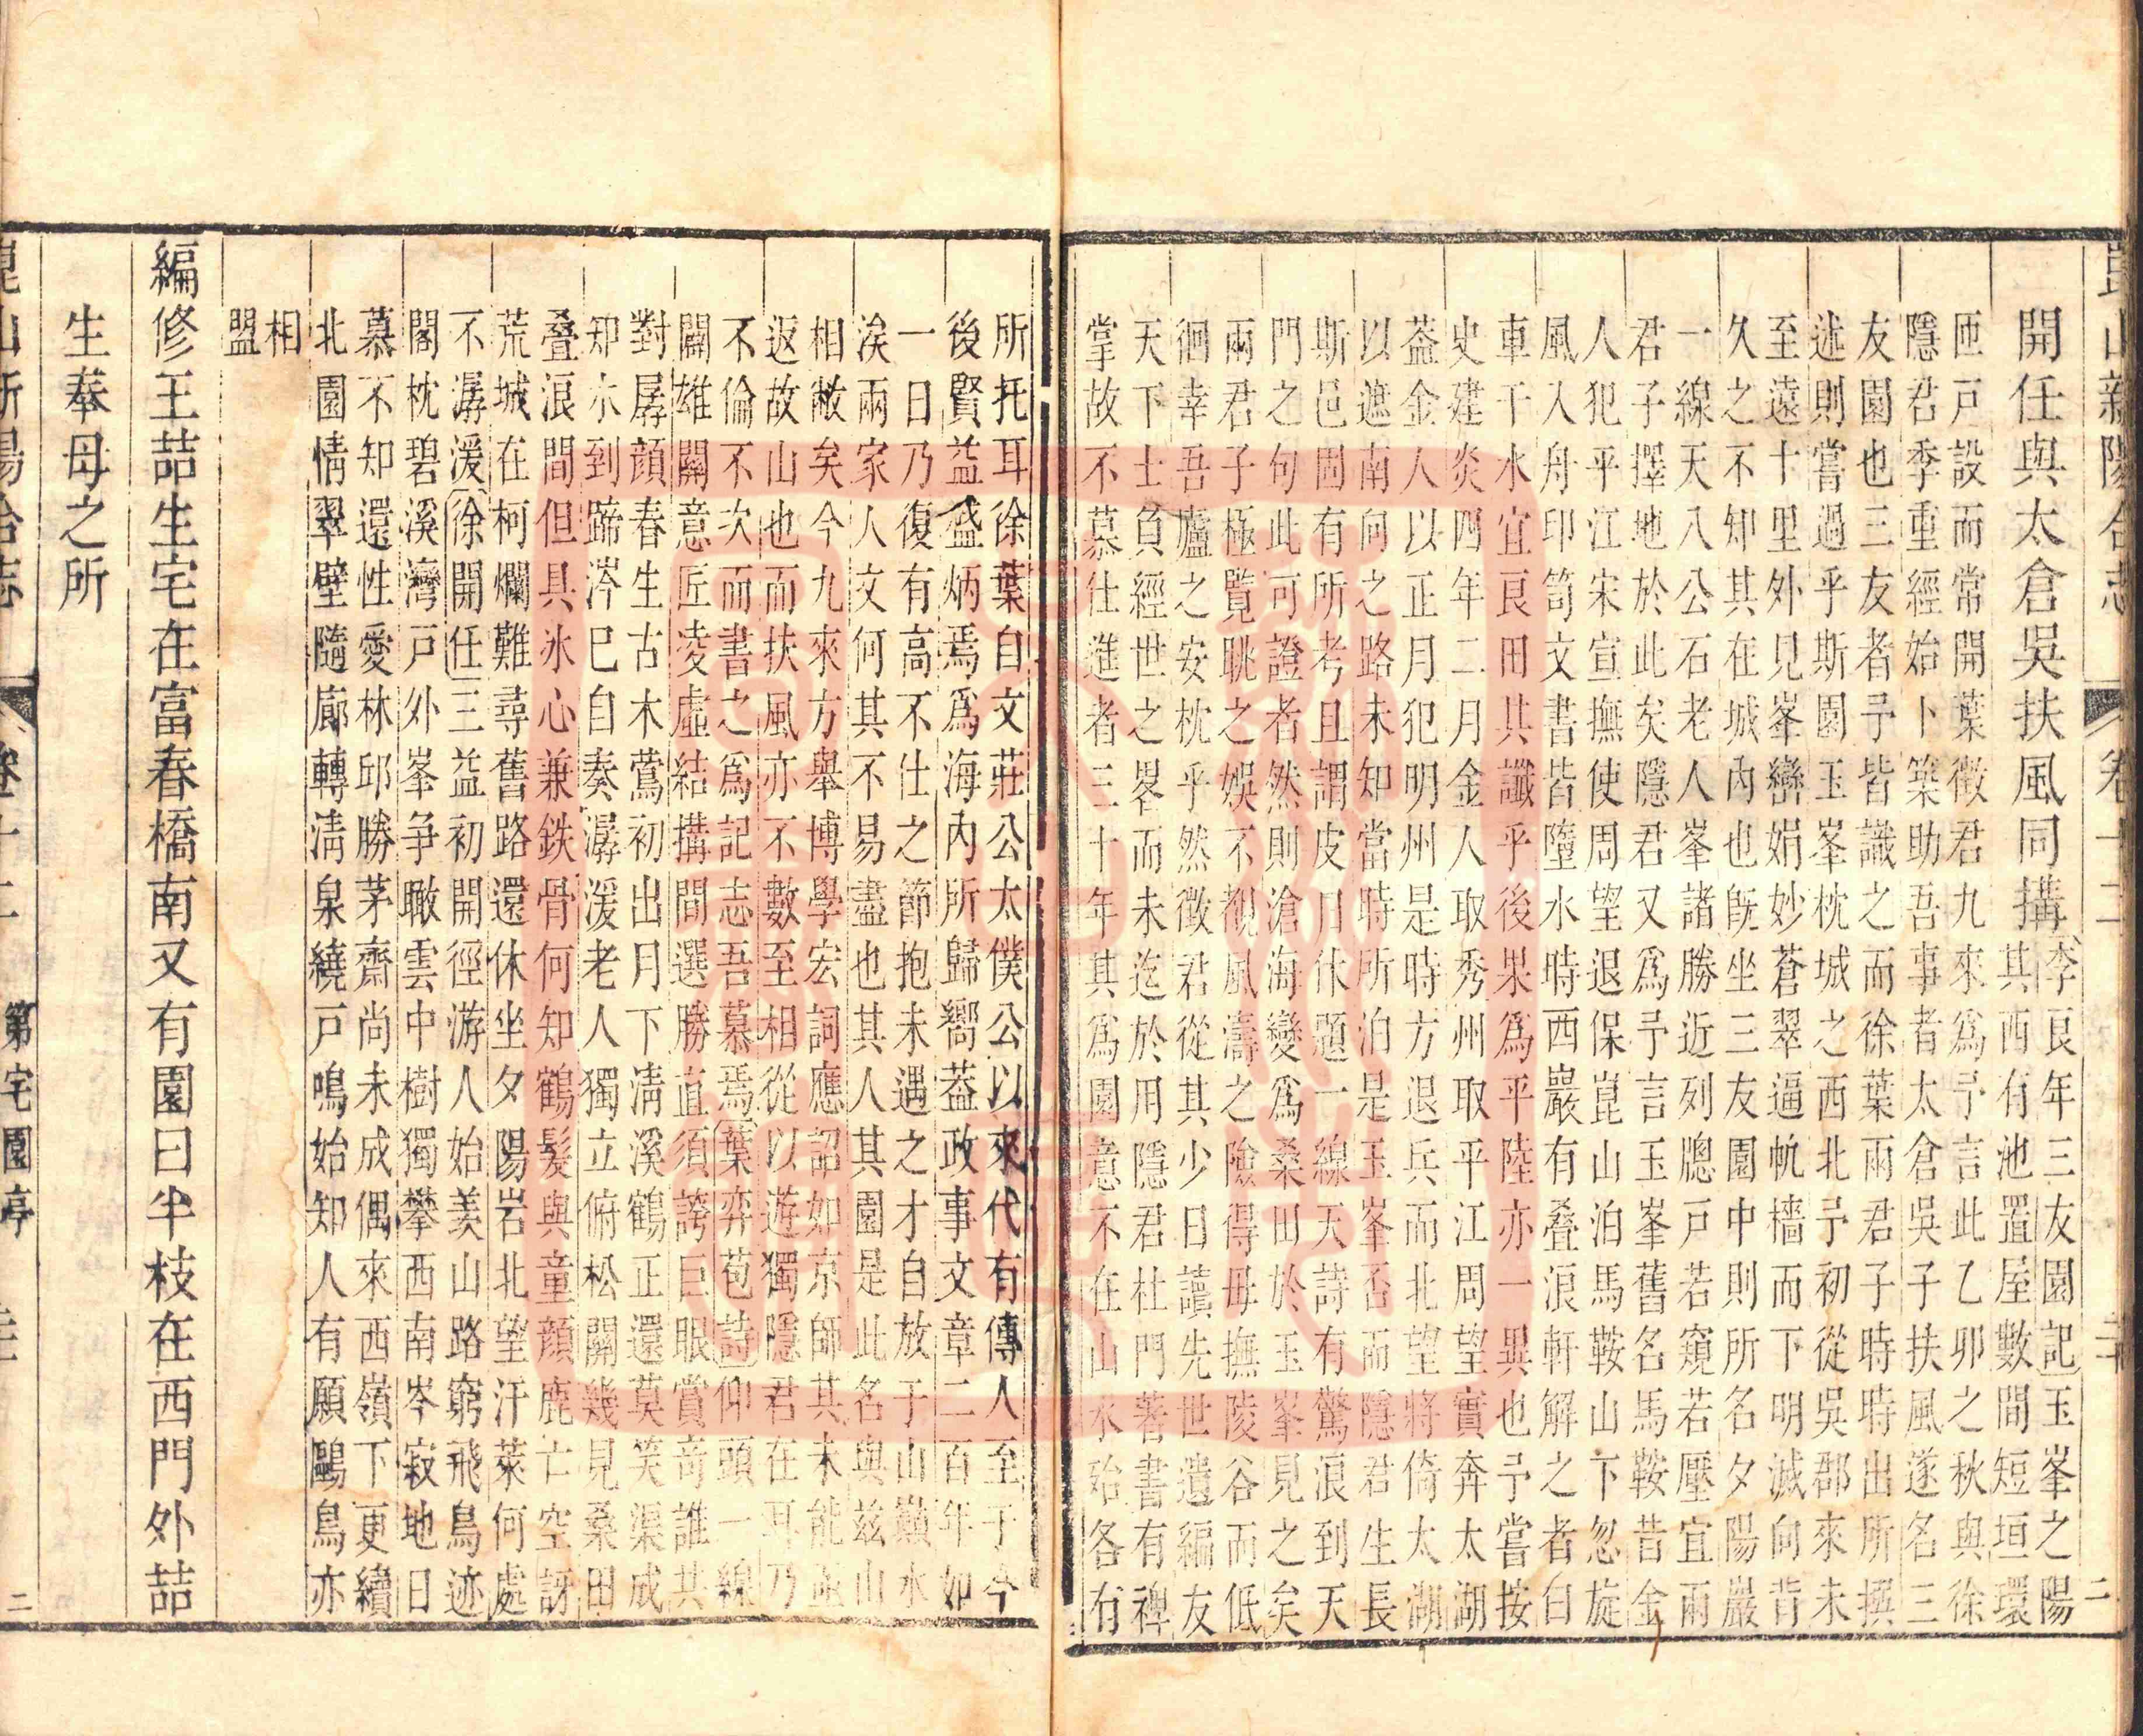 崑山新陽合志
卷十二
二
開任與太倉吳扶風同搆
李良年三友園記玉峯之陽
其西有池置屋數間短垣環
匝戸設而常開葉徵君九來為予言此乙卯之秋與徐
隱君季重經始卜築助吾事者太倉吳子扶風遂名三
友園也三友者予皆識之而徐葉兩君子時時出所撰
述則嘗過乎斯園玉峯枕城之西北予初從吳郡來未
至遠十里外見峯巒娟妙蒼翠逼帆檣而下明滅向背
久之不知其在城內也旣坐三友園中則所名夕陽巖
一線天八公石老人峯諸勝近列牕戸若窺若壓宜兩
君子擇地於此矣隱君又為予言玉峯舊名馬鞍昔金
人犯平江宋宣撫使周望退保崑山泊馬鞍山下忽旋
風入舟印笥文書皆墮水時西巖有叠浪軒解之者曰
車干水宜良田其讖乎後果為平陸亦一異也予嘗按
史建炎四年二月金人取秀州取平江周望實奔太湖
葢金人以正月犯明州是時方退兵而北望將倚太湖
以遮南向之路未知當時所泊是玉峯否而隱君生長
斯邑固有所考且謂皮日休題一線天詩有驚浪到天
門之句此可證者然則滄海變為桑田於玉峯見之矣
兩君子極覽眺之娛不覩風濤之險得毋撫陵谷而低
徊幸吾廬之安枕乎然徵君從其少日讀先世遺編友
天下士負經世之畧而未迄於用隱君杜門著書有裨
掌故不慕仕進者三十年其為園意不在山水殆各有
所托耳徐葉自文莊公太僕公以來代有傳人至于今
後賢益盛炳焉為海內所歸嚮葢政事文章二百年如
一日乃復有高不仕之節抱未遇之才自放于山巔水
涘兩家人文何其不易盡也其人其園是此名與茲山
相敝矣今九來方舉博學宏詞應詔如京師其未能亟
返故山也而扶風亦不數至相從以遊獨隱君在耳乃
不倫不次而書之為記志吾慕焉葉弈苞詩仰頭一線
闢雄關意匠凌虛結搆間選勝直須誇巨眼賞奇誰共
對孱顔春生古木鶯初出月下淸溪鶴正還莫笑渠成
知水到蹄涔巳自奏潺湲老人獨立俯松關幾見桑田
叠浪間但具氷心兼鉄骨何知鶴髮與童顔鹿亡空訝
荒城在柯爛難尋舊路還休坐夕陽岩北望汙萊何處
不潺湲徐開任三益初開徑游人始羨山路窮飛鳥迹
閣枕碧溪灣戸外峯争瞰雲中樹獨攀西南岑寂地日
慕不知還性愛林邱勝茅齋尚未成偶來西嶺下更續
北園情翠壁隨廊轉淸泉繞戸鳴始知人有願鷗鳥亦
相
盟
編修王喆生宅在富春橋南又有園曰半枝在西門外喆
生奉母之所
崑山新陽合志
卷十二
第宅園亭
二